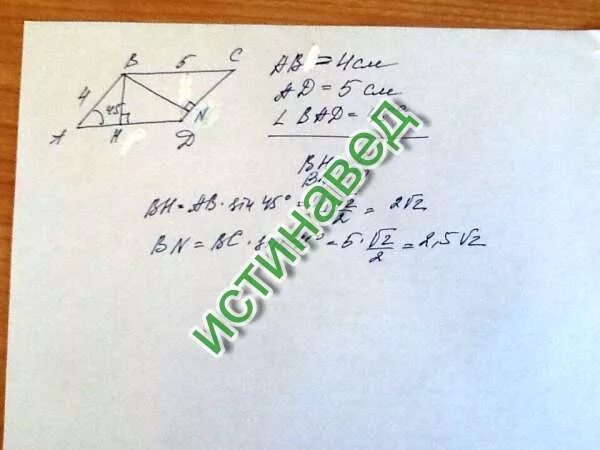 B 5 C
4 45° N
A H D
AB = 4 см
AD = 5 см
∠ BAD =
BH
BH = AB · sin 45° = √2/2 = 2√2
BN = BC · = 5 · √2/2 = 2,5√2
истинавед